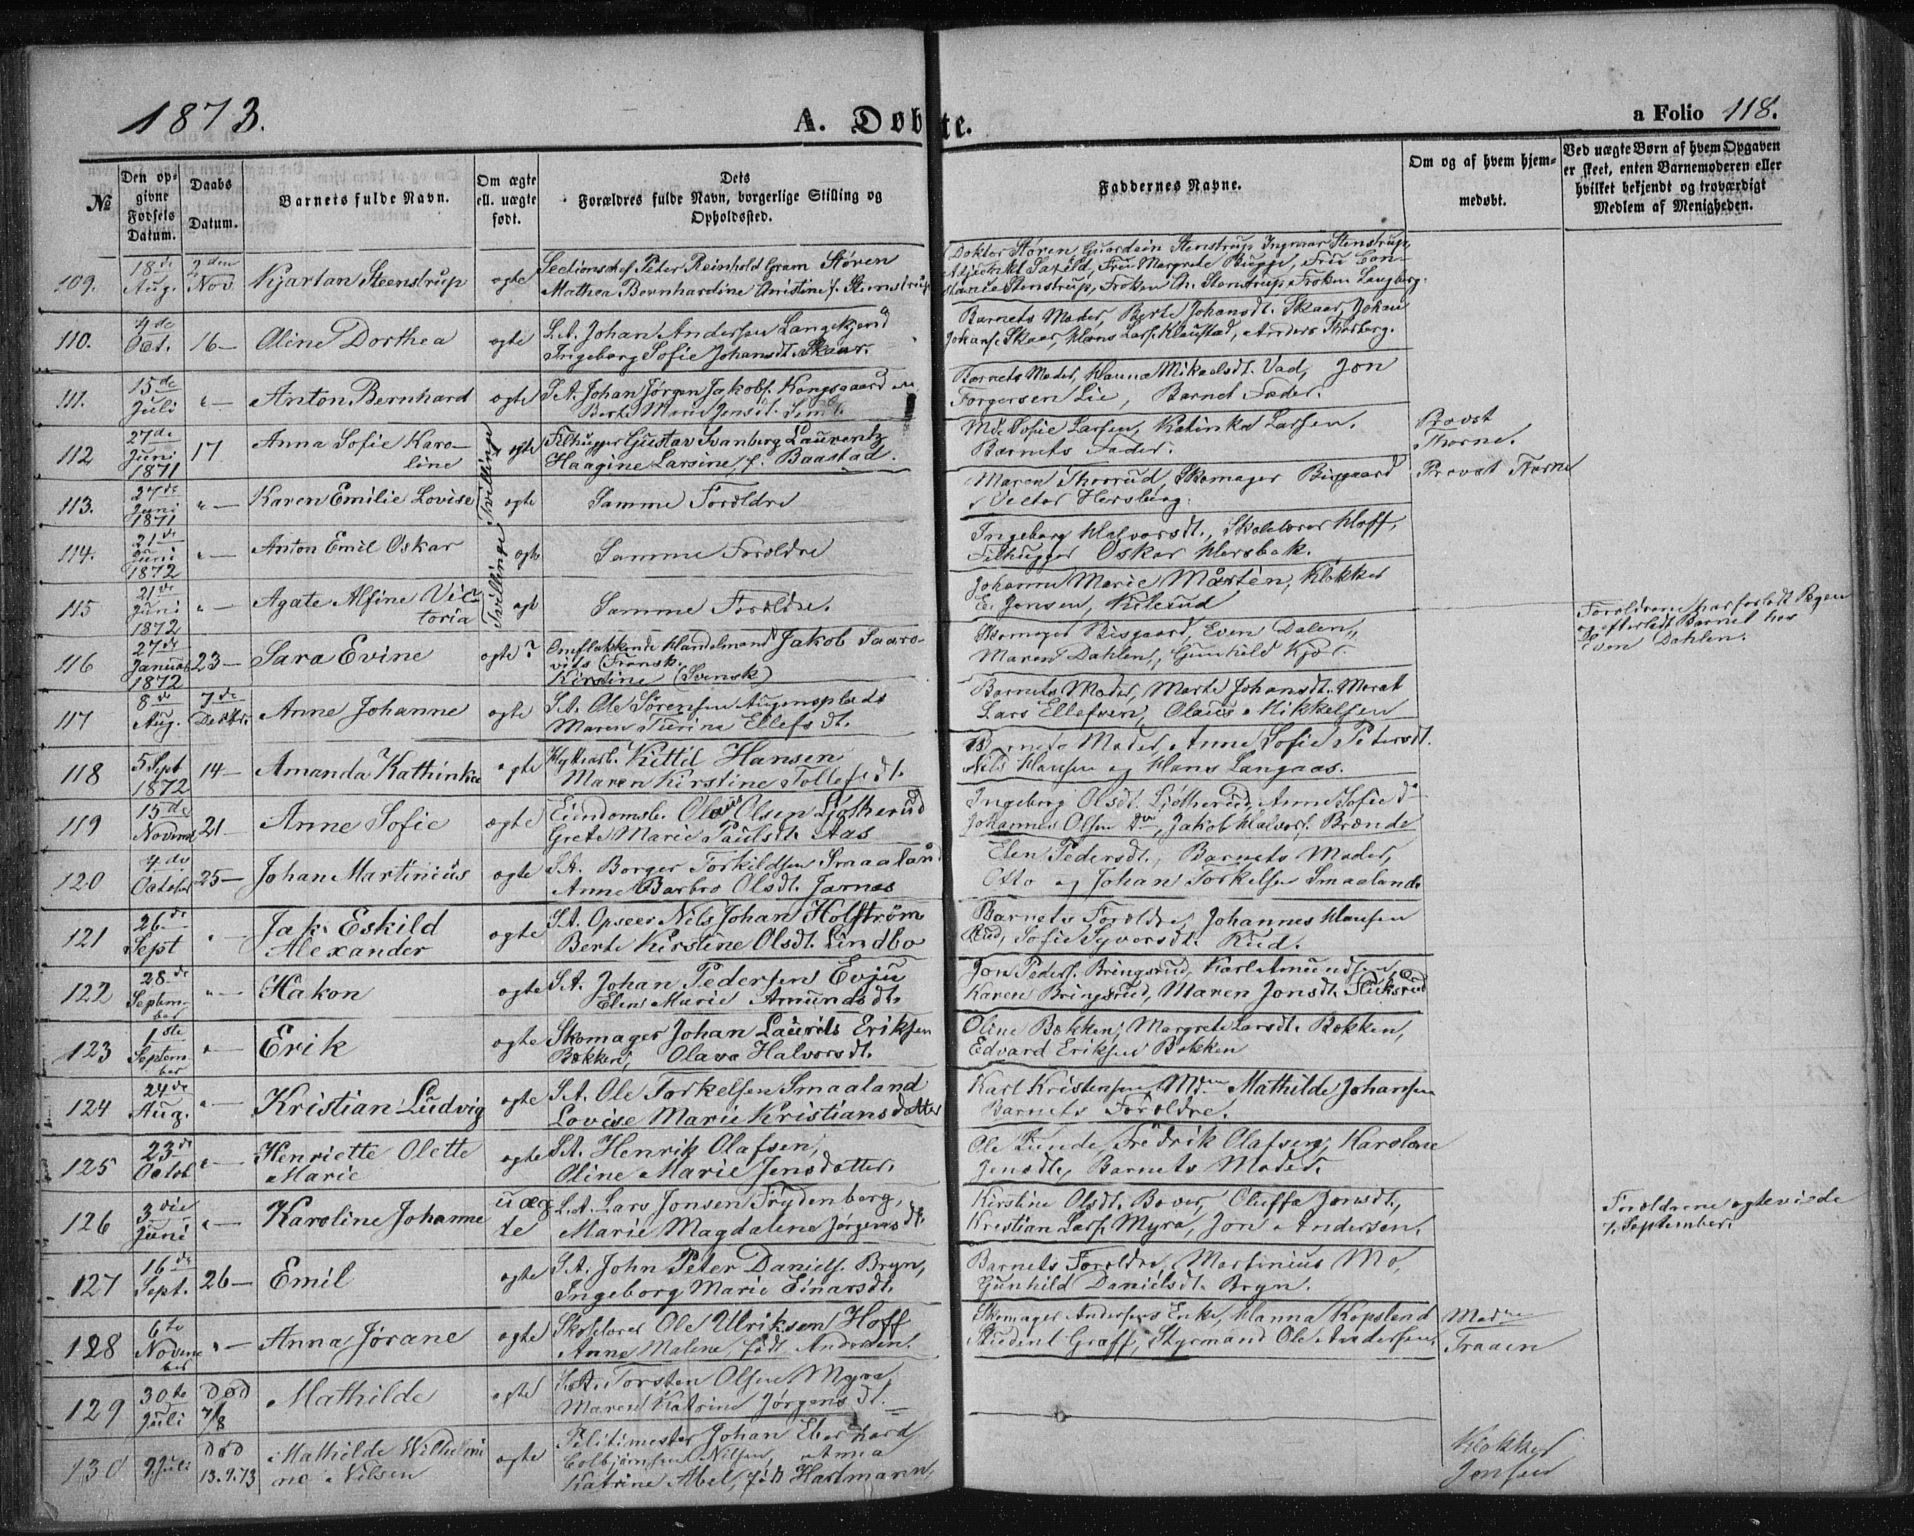 1873.
A. Døbte.
a Folio 118.
№
Den opgivne Fødsels Datum.
Daabs Datum.
Barnets fulde Navn.
Om ægte ell. uægte født.
Dets Forældres fulde Navn, borgerlige Stilling og Opholdssted.
Faddernes Navne.
Om og af hvem hjemmedøbt.
Ved uægte Børn af hvem Opgaven er skeet, enten Barnemoderen eller hvilket bekjendt og troværdigt Medlem af Menigheden.
109. 18de Aug. 2den Nov Kjartan Steenstrup ægte Sectionschef Peter Reinhold Gram Støren
Mathea Bernhardine Christine f. Stenstrup
Doktor Støren, Guardein Stenstrup, Ingmar Stenstrup,
Fru Margrete Bugge, Fru Constance Stenstrup, Frøken Ch. Stenstrup, Frøken Langberg.
110. 4de Oct. 16 — Oline Dorthea ægte S.A. Johan Andersen Langekjend
Ingeborg Sofie Johansdt. Skaar.
Barnets Moder, Berte Johansdt. Skaar, Johan
Johans. Skaar, Hans Lars. Klaustad, Anders Thorberg.
111. 15de Juli " — Anton Bernhard ægte S.A. Johan Jørgen Jakobs. Kongsgaard
Berte Marie Jensdt.
Barnets Moder, Hanna Mikaelsdt. Vad, Jon
Torgersen Lie, Barnets Fader.
112 27de Juni 1871 17 Anna Sofie Karoline Tvillinge ægte Filhugger Gustav Svanberg Laurentz
Haagine Larsine f. Baastad.
Md. Sofie Larsen, Katinka Larsen.
Barnets Fader.
Provst Thorne.
113. 27de Juni 1871 " — Karen Emilie Lovise ægte Samme Forældre
Maren Thorrud, Skomager Bisgaard
Victor Hersberg.
Provst Thorne
114. 21de Juni 1872 " — Anton Emil Oskar Tvillinge ægte Samme Forældre
Ingeborg Halvorsdt., Skolelærer Hoff,
Filhugger Oskar Hersbak.
115 21de Juni 1872 " — Agate Alfine Victoria ægte Samme Forældre.
Johanne Marie Mårtén, Klokker
E. Jensen, Kilerud
116 27de Januar 1872 23 — Sara Evine ægte? Omflakkende Handelmand Jakob Saarovits (Fransk.
Kirstine (Svensk)
Skomager Bisgaard, Even Dalen,
Maren Dahlen, Gunhild Kjær
Forældrene har forladt Bygen
og efterladt Barnet hos
Even Dahlen.
117 8de Aug. 7de Decbr. Anne Johanne ægte S.A. Ole Sørensen Augensplads
Maren Turina Ellefsdt.
Barnets Moder, Marte Johansdt. Morat
Lars Ellefsen, Olaus Mikkelsen
118 5 Sept 1872 14 — Amanda Kathinka ægte Hytteab. Kittil Hansen
Maren Kirstine Tollefsdt.
Barnets Moder, Anne Sofie Petersdt.
Nils Hansen og Hans Langaas.
119 15de Novemb 21 — Anne Sofie ægte Eiendomsb. Olaus Olsen Ljøtherud
Grete Marie Paulsdt. Aas
Ingeborg Olsdt. Ljøtherud, Anne Sofie do
Johannes Olsen do, Jakob Halvors. Brænde
120 4de October 25 — Johan Martinius ægte S.A. Borger Torkildsen Smaaland
Anne Barbro Olsdt. Jarnæs
Elen Pedersdt., Barnets Moder,
Otto og Johan Torkelsen Smaaland
121 26de Sept " Jak. Eskild Alexander ægte S.A. Opseer Nils Johan Holfstrøm
Berte Kirstine Olsdt. Lindbo
Barnets Forældre, Johannes Hansen
Rud, Sofie Syversdt. Rud.
122 28de September " — Hakon ægte S.A. Johan Pedersen Evju
Elen Marie Amundsdt.
Jon Peders. Bringsrud, Karl Amundsen
Karen Bringsrud, Maren Jonsdt. Fliksrud
123 1ste September " — Erik ægte Skomager Johan Laurits Eriksen
Bækken, Olava Halvorsdt.
Oline Bækken, Margrete Larsdt. Bækken,
Edvard Eriksen Bækken
124 24de Aug. " — Kristian Ludvig ægte S.A. Ole Torkelsen Smaaland
Lovise Marie Kristiansdatter
Karl Kristensen, Mdm Mathilde Johansen
Barnets Forældre.
125 23de Octob " — Henriette Olette Marie ægte S.A. Henrik Olafsen,
Oline Marie Jensdatter.
Ole Lunde, Fredrik Olafsen, Karoline
Jensdt., Barnets Moder.
126 3die Juni " — Karoline Johanne uægte S.A. Lars Jonsen Frydenberg,
Marie Magdalene Jørgensdt.
Kirstine Olsdt. Bover, Oleffa Jonsdt.,
Kristian Lars. Myra, Jon Andersen.
Forældrene ægteviede
7. September.
127 16de Sept. 26 — Emil ægte S.A. John Peter Daniels. Bryn,
Ingeborg Marie Einarsdt.
Barnets Forældre, Martinius Mo,
Gunhild Danielsdt. Bryn.
128 6te November " — Anna Jørane ægte Skolelærer Ole Ulriksen Hoff
Anne Malene, født Andersen.
Skomager Andersens Enke, Hanna Kopsland
Student Graff, Styrmand Ole Andersen,
Madme
Traaen
129 30te Juli Død 7/8 Mathilde ægte S.A. Torsten Olsen Myra,
Maren Katrine Jørgensdt.
130 9 Juli Død 13.9.73 Mathilde Wilhelmine Nilsen ægte Politimester Johan Eberhard
Colbjørnsen Nilsen, Anna
Katrine Abel, født Hartmann,
Klokker
Jensen